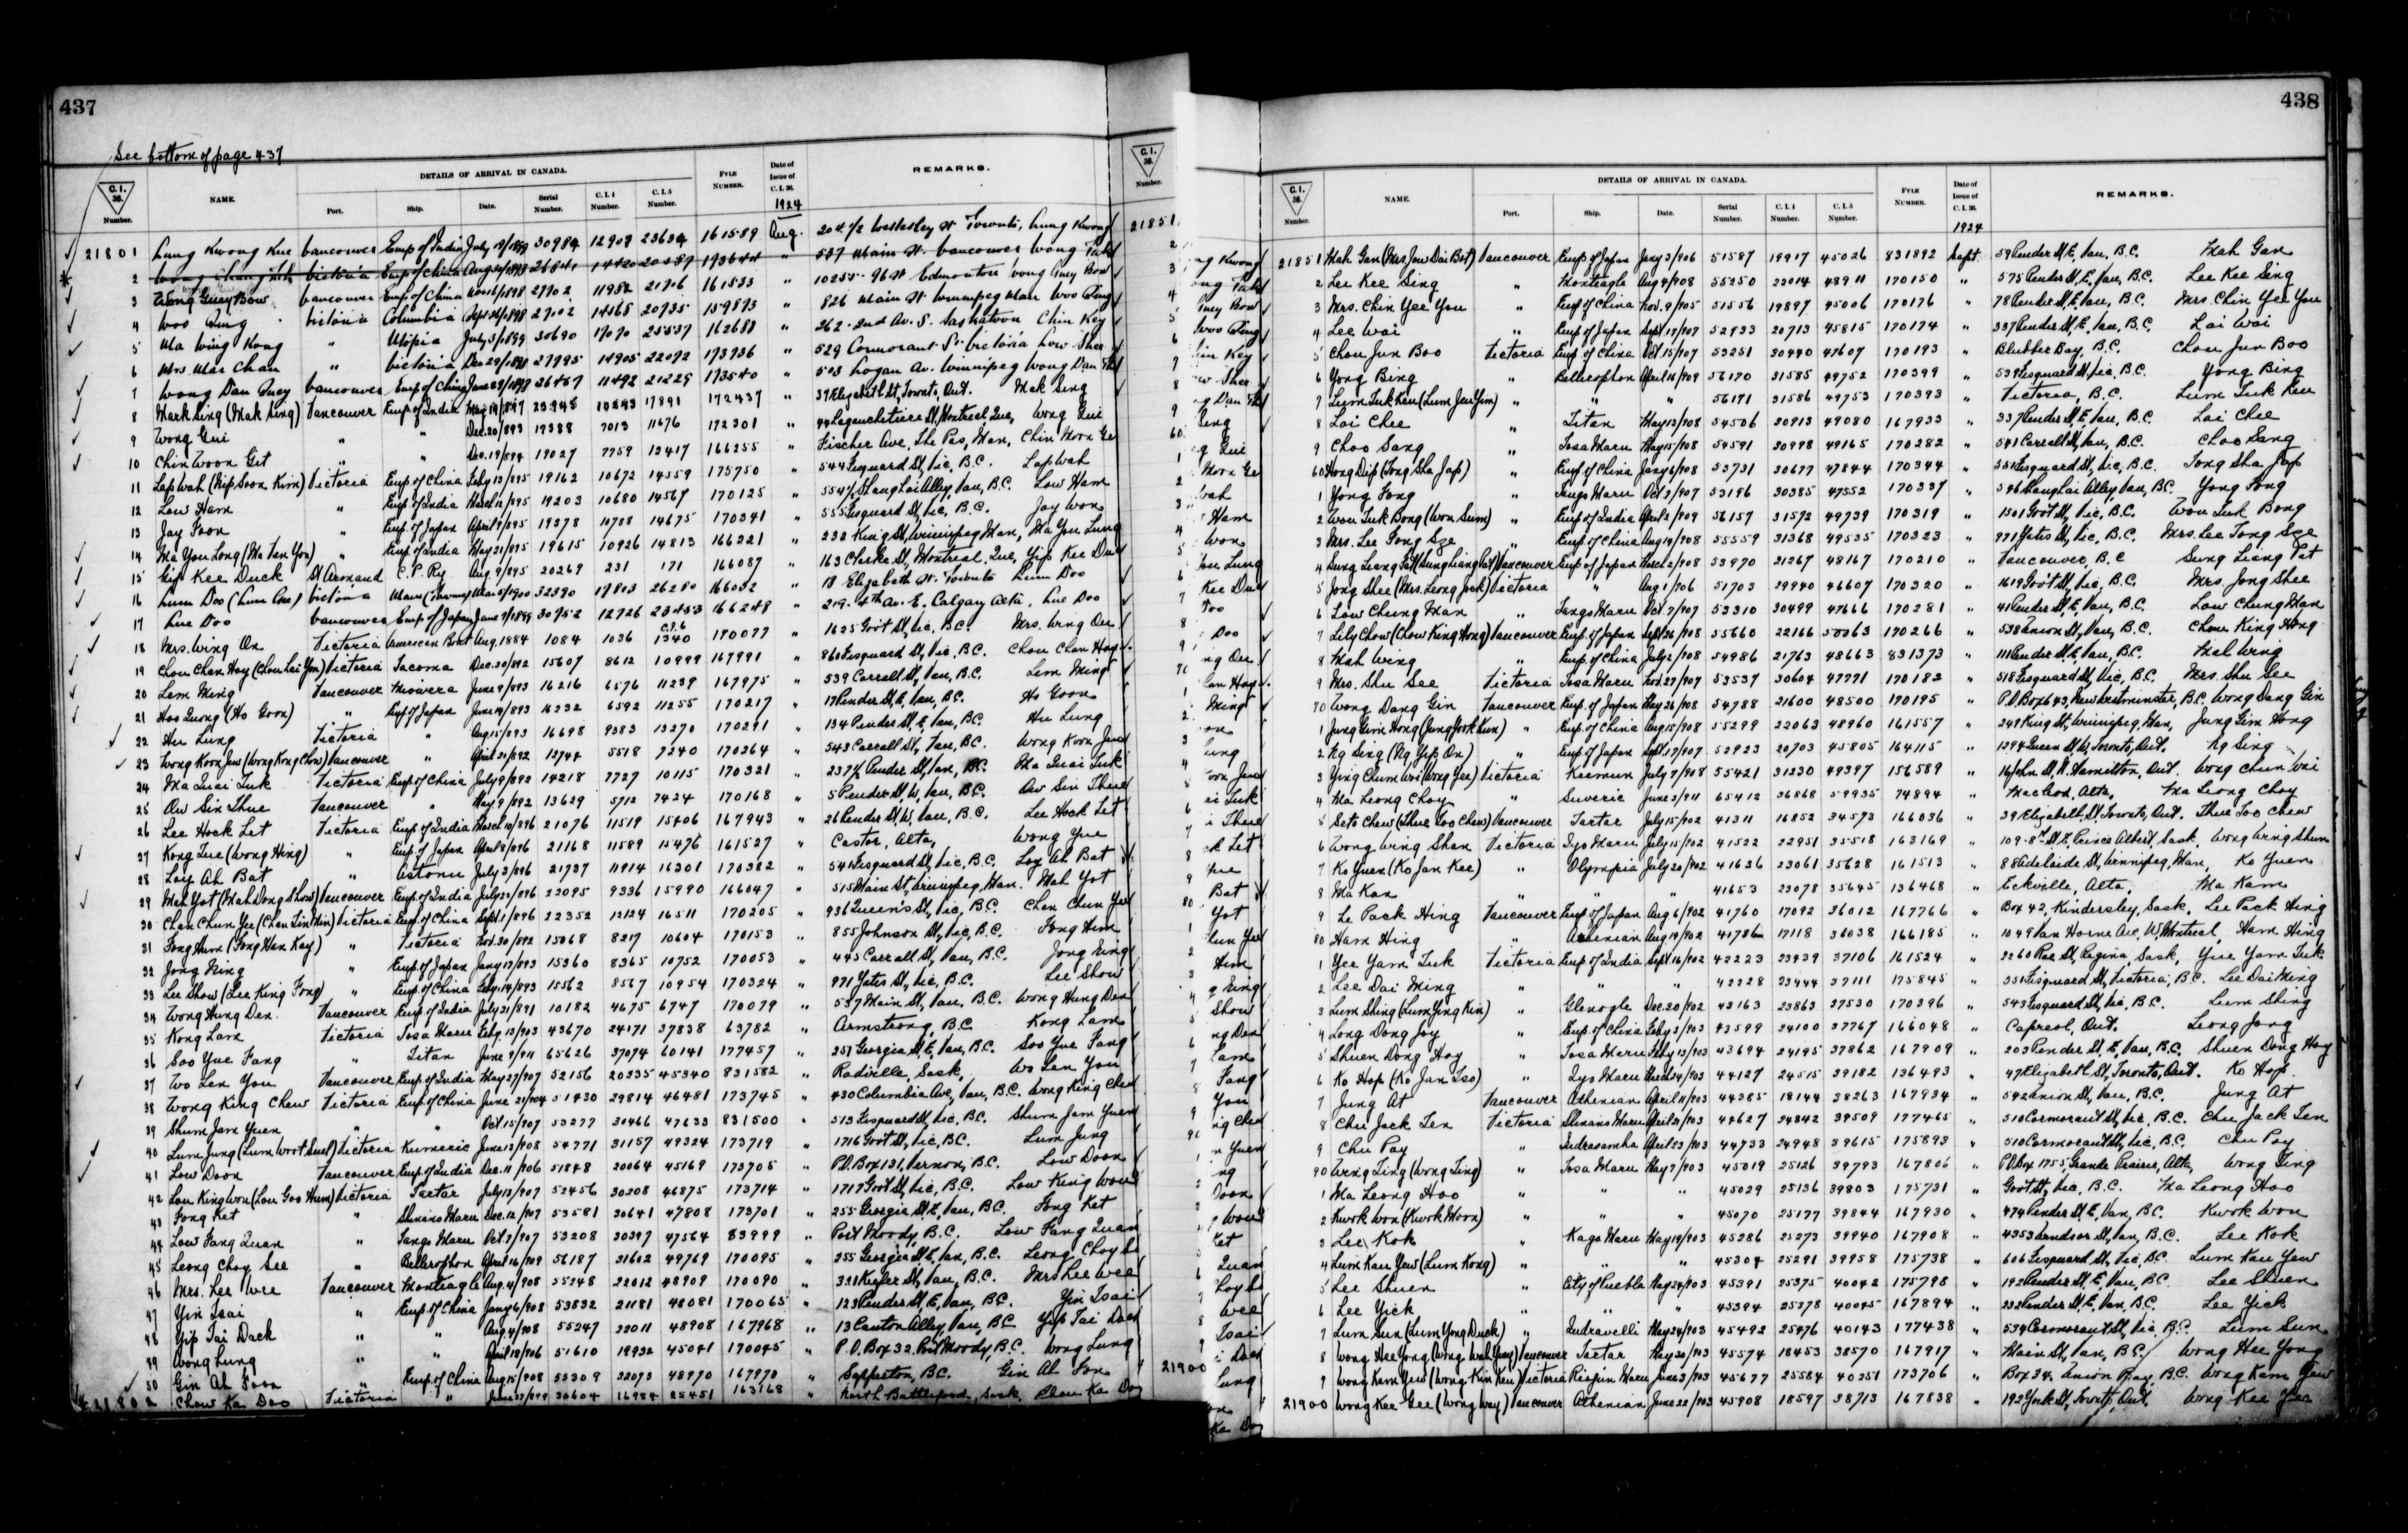 437
See bottom of page 437
C.I. 36. Number. NAME. DETAILS OF ARRIVAL IN CANADA. Port. Ship. Date. Serial Number. C.I.4 Number. C.I.5 Number. FYLE NUMBER. Date of Issue of C.I.36. 1924 REMARKS.
21801 Lung Kwong Kue Vancouver Emp of India July 18/1899 30984 12909 23634 161589 Aug. 204 1/2 Wellesley St Toronto, Lung Kwong
2 Victoria Emp of China 193644 " 537 Main St. Vancouver Wong
3 Wong Guey Bow Vancouver Emp of China 1898 27902 11982 21706 161533 " 10255-96 St Edmonton Wong Guey Bow
4 Woo Ging Victoria Columbia Sept 26/1898 27102 14568 20735 159893 " 826 Main St Winnipeg Man Woo Ging
5 Ma Wing Kong " Utopia July 3/1899 30690 17070 25537 162688 " 262-2nd Av. S. Saskatoon Chin Key
6 Mrs. Mar Chan " Victoria Dec 29/1898 27995 14905 22072 173936 " 529 Cormorant St Victoria Low Sher
7 Wong Dan Quey Vancouver Emp of China 26467 11492 21229 173540 " 503 Logan Av. Winnipeg Wong Dan
8 Mark Sing (Mak Sing) Vancouver Emp of India 1897 23945 10243 17891 172437 " 37 Elizabeth St, Toronto, Ont. Mak Sing
9 Wong Gui " " Dec. 20/893 17388 7013 11676 172301 " 44 Lagauchetiere St, Montreal, Que, Wong Gui
10 Chin Woon Git " " Dec. 19/894 19027 7759 12417 166255 " Fischer Ave, The Pas, Man, Chin Moon Ge
11 Lap Wah (Kip Soon Kim) Victoria Emp of China Feby 13/895 19162 10672 14559 175750 " 544 Fisguard St, Vic, B.C. Lap Wah
12 Low Ham " Emp of India March 11/895 19203 10680 14567 170125 " Shanghai Alley, Van, B.C. Low Ham
13 Jay Foon " Emp. of Japan April 9/895 19378 10788 14675 170341 " 555 Fisguard St, Vic, B.C. Jay Won
14 Ma You Long (Ma Van You) " Emp. of India May 21/895 19615 10926 14813 166221 " 232 King St, Winnipeg Man, Ma You Lung
15 Yip Kee Duck St Armand C.P. Ry Aug. 9/895 20269 231 171 166087 " 163 Clarke St, Montreal, Que, Yip Kee Duck
16 Lum Doo Victoria 1900 32390 17803 26280 166032 " 18 Elizabeth St. Toronto Lum Doo
17 Lue Doo Vancouver Emp of Japan June 7/1899 30752 12726 23453 166248 " 219-4th Av. E. Calgary Alta. Lue Doo
18 Mrs. Wing On Victoria American Boat Aug. 1884 1084 1036 C.I.6 1340 170077 " 1625 Gov't St, Vic, B.C. Mrs. Wing On
19 Chou Chan Hoy (Chou Lai Yon) Victoria Tacoma Dec. 20/892 15607 8612 10999 167991 " 860 Fisguard St, Vic, B.C. Chou Chan Hoy
20 Lem Ming Vancouver Miowera June 9/893 16216 6576 11239 167975 " 539 Carrall St, Van, B.C. Lem Ming
21 Hoo Quong (Ho Goon) " Emp. of Japan June 14/893 16232 6592 11255 170217 " 17 Pender St, E, Van, B.C. Ho Goon
22 Hu Lung Victoria " Aug 15/893 16698 9383 13270 170291 " 134 Pender St, E, Van, B.C. Hu Lung
23 Wong Koon Jew (Wong Kong Chow) Vancouver " April 21/892 12744 5518 7240 170264 " 543 Carrall St, Van, B.C. Wong Koon Jew
24 Ma Quai Tuk Victoria Emp. of China July 9/892 14218 7727 10115 170321 " 237 1/2 Pender St, Van, B.C. Ma Quai Tuk
25 Aw Sin Thue Vancouver " May 9/892 13629 5712 7424 170168 " 5 Pender St, W, Van, B.C. Aw Sin Thue
26 Lee Hock Let Victoria Emp. of India March 10/896 21076 11519 15406 167943 " 26 Pender St, W, Van, B.C. Lee Hock Let
27 Kong Yue (Wong Hing) " Emp. of Japan April 8/896 21168 11589 15476 161527 " Castor, Alta, Wong Yue
28 Loy Ah Bat " Astoria July 3/896 21737 11914 16301 170382 " 541 Fisguard St, Vic, B.C. Loy Ah Bat
29 Mah Yot (Mah Dong Show) Vancouver Emp. of India July 28/896 22095 9336 15990 166047 " 515 Main St, Winnipeg, Man. Mah Yot
30 Chan Chun Yee (Chan Sin Kin) Victoria Emp. of China Sept. 1/896 22352 12124 16511 170205 " 936 Queen's St, Vic, B.C. Chan Chun Yee
31 Fong Hum (Fong Han Kay) " Victoria Nov. 30/892 15068 8217 10604 170153 " 855 Johnson St, Vic, B.C. Fong Him
32 Jong King " Emp. of Japan Jany 13/893 15360 8365 10752 170053 " 445 Carrall St, Van, B.C. Jong King
33 Lee Show (Lee King Fong) " Emp. of China Feby. 14/893 15562 8567 10954 170324 " 971 Yates St, Vic, B.C. Lee Show
34 Wong Hung Den Vancouver Emp. of India July 21/891 10182 4675 6747 170079 " 537 Main St, Van, B.C. Wong Hung Den
35 Kong Lam Victoria Tosa Maru Feby. 13/903 43670 24171 37838 63782 " Armstrong, B.C. Kong Lam
36 Soo Yue Fang " Titan June 9/911 65626 37074 60141 177457 " 257 Georgia St, E, Van, B.C. Soo Yue Fang
37 Wo Len You Vancouver Emp. of India May 27/907 52156 20335 45340 831582 " Radville, Sask, Wo Len You
38 Wong King Chew Victoria Emp. of China June 21/904 51430 29814 46481 173745 " 430 Columbia Ave, Van, B.C. Wong King Chew
39 Shum Jam Yuen " " Oct. 15/907 53277 30466 47633 831500 " 513 Fisguard St, Vic, B.C. Shum Jam Yuen
40 Lum Jung (Lum Woot Suel) Victoria Kumeric June 13/908 54771 31157 49324 173719 " 1716 Govt St, Vic, B.C. Lum Jung
41 Low Doon Vancouver Emp. of India Dec. 11/906 51848 20064 45169 173705 " P.O. Box 131, Vernon, B.C. Low Doon
42 Lou King Won (Lou Goo Hum) Victoria Tartar July 13/907 52456 30208 46875 173714 " 1717 Govt St, Vic, B.C. Low King Won
43 Fong Ket " Shinano Maru Dec. 12/907 53581 30641 47808 173701 " 255 Georgia St, E, Van, B.C. Fong Ket
44 Low Fang Quan " Tango Maru Oct. 7/907 53208 30397 47564 83999 " Port Moody, B.C. Low Fang Quan
45 Leong Choy See " Bellerophon April 16/909 56187 31602 49769 170095 " 255 Georgia St, E, Van, B.C. Leong Choy Se
46 Mrs. Lee Wee Vancouver Monteagle Aug. 4/908 55248 22012 48909 170090 " 321 Keefer St, Van, B.C. Mrs Lee Wee
47 Yin Tsai " Emp. of China Jany 6/908 53832 21181 48081 170065 " 123 Pender St, E, Van, B.C. Yin Tsai
48 Yip Tai Dack " " Aug. 4/908 55247 22011 48908 167968 " 13 Canton Alley, Van, B.C. Yip Tai Dack
49 Wong Lung " " April 18/906 51610 19932 45041 170045 " P.O. Box 32, Port Moody, B.C. Wong Lung
50 Gin Ah Foon Emp. of China Aug 15/908 55309 22073 48970 167970 " Sapperton, B.C. Gin Ah Fon
21802 Chow Ka Doo Victoria " June 27/1899 30604 16984 25451 163168 " North Battleford, Sask. Chow Ka Doo
438
C.I. 36. Number. NAME. DETAILS OF ARRIVAL IN CANADA. Port. Ship. Date. Serial Number. C.I.4 Number. C.I.5 Number. FYLE NUMBER. Date of Issue of C.I.36. 1924 REMARKS.
21851 Mah Gan (Mrs Jow Dai Bot) Vancouver Emp. of Japan Jany 3/906 51587 19917 45026 831892 Sept. 59 Pender St, E, Van, B.C. Mah Gan
2 Lee Kee Sing " Monteagle Aug 4/908 55250 22014 48911 170150 " 575 Pender St, E, Van, B.C. Lee Kee Sing
3 Mrs. Chin Yee You " Emp. of China Nov. 9/905 51556 19897 45006 170176 " 78 Pender St, E, Van, B.C. Mrs. Chin Yee You
4 Lee Wai " Emp. of Japan Sept. 17/907 52933 20713 45815 170174 " 337 Pender St, E, Van, B.C. Lai Wai
5 Chou Jun Boo Victoria Emp. of China Oct. 15/907 53251 30440 47607 170193 " Blubber Bay, B.C. Chou Jun Boo
6 Yong Bing " Bellerophon April 16/909 56170 31585 49752 170399 " 539 Fisguard St, Vic, B.C. Yong Bing
7 Lum Tuk Ken (Lum Jeu Yim) " " " 56171 31586 49753 170393 " Victoria, B.C. Lum Tuk Ken
8 Loi Chee " Titan May 13/908 54506 30913 49080 167933 " 337 Pender St, E, Van, B.C. Lai Chee
9 Choo Sang " Tosa Maru May 15/908 54591 30998 49165 170282 " 541 Carrall St, Van, B.C. Choo Sang
60 Hong Dip (Tong Sha Jap) " Emp. of China Jany 6/908 53731 30677 47844 170344 " 551 Fisguard St, Vic, B.C. Tong Sha Jap
1 Yong Fong " Tango Maru Oct 7/907 53196 30385 47552 170337 " 546 Shanghai Alley Van, B.C. Yong Fong
2 Wou Tuk Bong (Wou Sum) " Emp. of India April 2/909 56157 31572 49739 170319 " 1501 Govt St, Vic, B.C. Wou Tuk Bong
3 Mrs. Lee Fong Sze " Emp. of China Aug 14/908 55559 31368 49535 170323 " 971 Yates St, Vic, B.C. Mrs. Lee Tong Sze
4 Sung Leang Pat (Sung Liang Pat) Vancouver Emp. of Japan March 2/908 53970 21267 48167 170210 " Vancouver, B.C Sung Liang Pat
5 Jong Shee (Mrs. Leong Jock) Victoria Aug. 1/906 51703 29940 46607 170320 " 1619 Govt St, Vic, B.C. Mrs. Jong Shee
6 Low Chung Man " Tango Maru Oct. 7/907 53310 30499 47666 170281 " 41 Pender St, E, Van, B.C. Low Chung Man
7 Lily Chow (Chow King Hong) Vancouver Emp. of Japan Sept. 26/908 55660 22166 50063 170266 " 538 Union St, Van, B.C. Chow King Hong
8 Mah Wing " Emp. of China July 2/908 54986 21763 48663 831373 " 111 Pender St, E, Van, B.C. Mah Wing
9 Mrs. Shu See Victoria Tosa Maru Nov. 27/907 53537 30604 47771 170182 " 518 Fisguard St, Vic, B.C. Mrs. Shu See
70 Wong Dang Gin Vancouver Emp. of Japan May 26/908 54788 21600 48500 170195 " P.O. Box 643, New Westminster, B.C. Wong Dang Gin
1 Jung Gim Hong (Jung Hook Kun) " Emp. of China Aug 15/908 55299 22063 48960 161557 " 248 King St, Winnipeg, Man, Jung Gim Hong
2 Ng Sing (Ng Yip On) " Emp. of Japan Sept. 17/907 52923 20703 45805 164115 " 1294 Queen St, W, Toronto, Ont. Ng Sing
3 Ying Chum Woi (Wong Yee) Victoria Keemun July 7/908 55421 31230 49397 156589 " 16 John St, N. Hamilton, Ont. Wong Chun Wai
4 Ma Leong Choy " Suveric June 3/911 65412 36868 59935 74894 " Macleod, Alta, Ma Leong Choy
5 Seto Chew (Thue Too Chew) Vancouver Tartar July 15/902 41311 16852 34573 166036 " 39 Elizabeth St, Toronto, Ont. Thue Too Chew
6 Wong Wing Shan Victoria Iyo Maru July 15/902 41522 22951 35518 163169 " 109-8th St, E, Prince Albert, Sask, Wong Wing Shum
7 Ko Yuen (Ko Jan Kee) " Olympia July 20/902 41636 23061 35628 161513 " 88 Adelaide St, Winnipeg, Man, Ko Yuen
8 Ma Kan " " " 41653 23078 35645 136468 " Eckville, Alta, Ma Kam
9 Le Pack Hing Vancouver Emp. of Japan Aug 6/902 41760 17092 36012 167766 " Box 42, Kindersley, Sask, Lee Pack Hing
80 Ham Hing " Athenian Aug 19/902 41786 17118 36038 166185 " 1049 Van Horne Ave, W, Montreal, Ham Hing
1 Yee Yam Tuk Victoria Emp. of India Sept. 16/902 42223 23439 37106 161524 " 2260 Rae St, Regina, Sask, Yue Yam Tuk
2 Lee Dai Ming " " " 42228 23444 37111 175845 " 551 Fisguard St, Victoria, B.C. Lee Dai Ming
3 Lum Shing (Lum Jing Kin) " Glenogle Dec. 20/902 43163 23863 37530 170396 " 543 Fisguard St, Vic, B.C. Lum Shing
4 Long Dong Joy " Emp. of China Feby 3/903 43599 24100 37767 166048 " Capreol, Ont. Leong Jong
5 Shuen Dong Hoy " Tosa Maru Feby 13/903 43694 24195 37862 167909 " 203 Pender St, E, Van, B.C. Shuen Dong Hoy
6 Ko Hop (Ko Jan Tso) " Iyo Maru March 24/903 44127 24515 39182 136493 " 47 Elizabeth St, Toronto, Ont. Ko Hop
7 Jung At Vancouver Athenian April 11/903 44385 18144 38263 167934 " 542 Union St, Van, B.C. Jung At
8 Chu Jack Ten Victoria Shinano Maru April 21/903 44627 24842 39509 177465 " 510 Cormorant St, Vic, B.C. Chu Jack Ten
9 Chu Pay " Indrasamha April 23/903 44733 24948 39615 175893 " 510 Cormorant St, Vic, B.C. Chu Pay
90 Wing Ting (Wong Ting) " Tosa Maru May 7/903 45019 25126 39793 167806 " P.O. Box 1755, Grande Prairie, Alta, Wong Ting
1 Ma Leong Hoo " " " 45029 25136 39803 175731 " Govt St, Vic, B.C. Ma Leong Hoo
2 Kwok Won (Kwok Moon) " " " 45070 25177 39844 167930 " 474 Pender St, E, Van, B.C. Kwok Won
3 Lee Kok " Kaga Maru May 19/903 45286 25273 39940 167908 " 4353 Windsor St, Van, B.C. Lee Kok
4 Lum Kau Yew (Lum Kong) " " " 45304 25291 39958 175738 " 606 Fisguard St, Vic, B.C. Lum Kau Yew
5 Lee Shuen " City of Puebla May 24/903 45391 25375 40042 175798 " 192 Pender St, E, Van, B.C. Lee Shuen
6 Lee Yick " " " 45394 25378 40045 167894 " 232 Pender St, E, Van, B.C. Lee Yick
7 Lum Sun (Lum Yong Duck) " Indravelli May 24/903 45492 25476 40143 177438 " 534 Cormorant St, Vic, B.C. Lum Sun
8 Wong Hee Yong (Wong Wah Guey) Vancouver Tartar May 30/903 45574 18453 38570 167917 " Main St, Van, B.C. Wong Hee Yong
9 Wong Kam Yew (Wong Kin Keu) Victoria Riojun Maru June 3/903 45677 25584 40251 173706 " Box 34, Union Bay, B.C. Wong Kam Yew
21900 Wong Kee Gee (Wong Way) Vancouver Athenian June 22/903 45908 18597 38713 167838 " 192 York St, Toronto, Ont. Wong Kee Gee